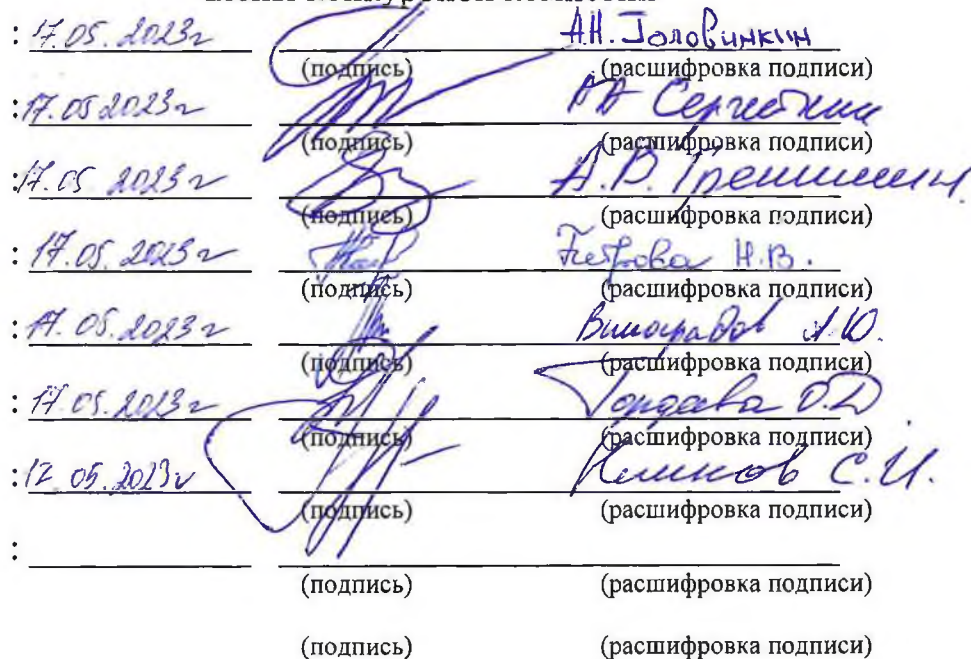 : 17.05.2023г А.Н. Головинкин
(подпись) (расшифровка подписи)
: 17.05.2023г
(подпись) (расшифровка подписи)
: 17.05.2023г А.В. Гришин
(подпись) (расшифровка подписи)
: 17.05.2023г Петрова Н.В.
(подпись) (расшифровка подписи)
: 17.05.2023г Виноградов А.Ю.
(подпись) (расшифровка подписи)
: 17.05.2023г Гордеева О.Д
(подпись) (расшифровка подписи)
: 17.05.2023г С.И.
(подпись) (расшифровка подписи)
:
(подпись) (расшифровка подписи)
(подпись) (расшифровка подписи)